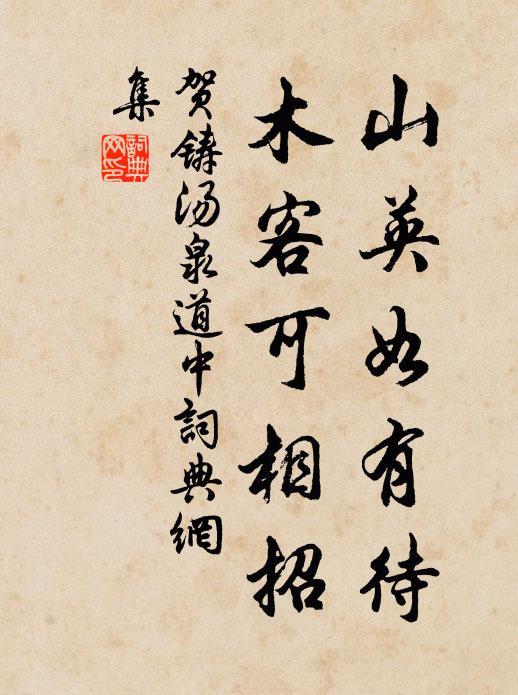 山英如有待
木客可相招
贺鑄汤泉道中詞典網
集
詞典
网印